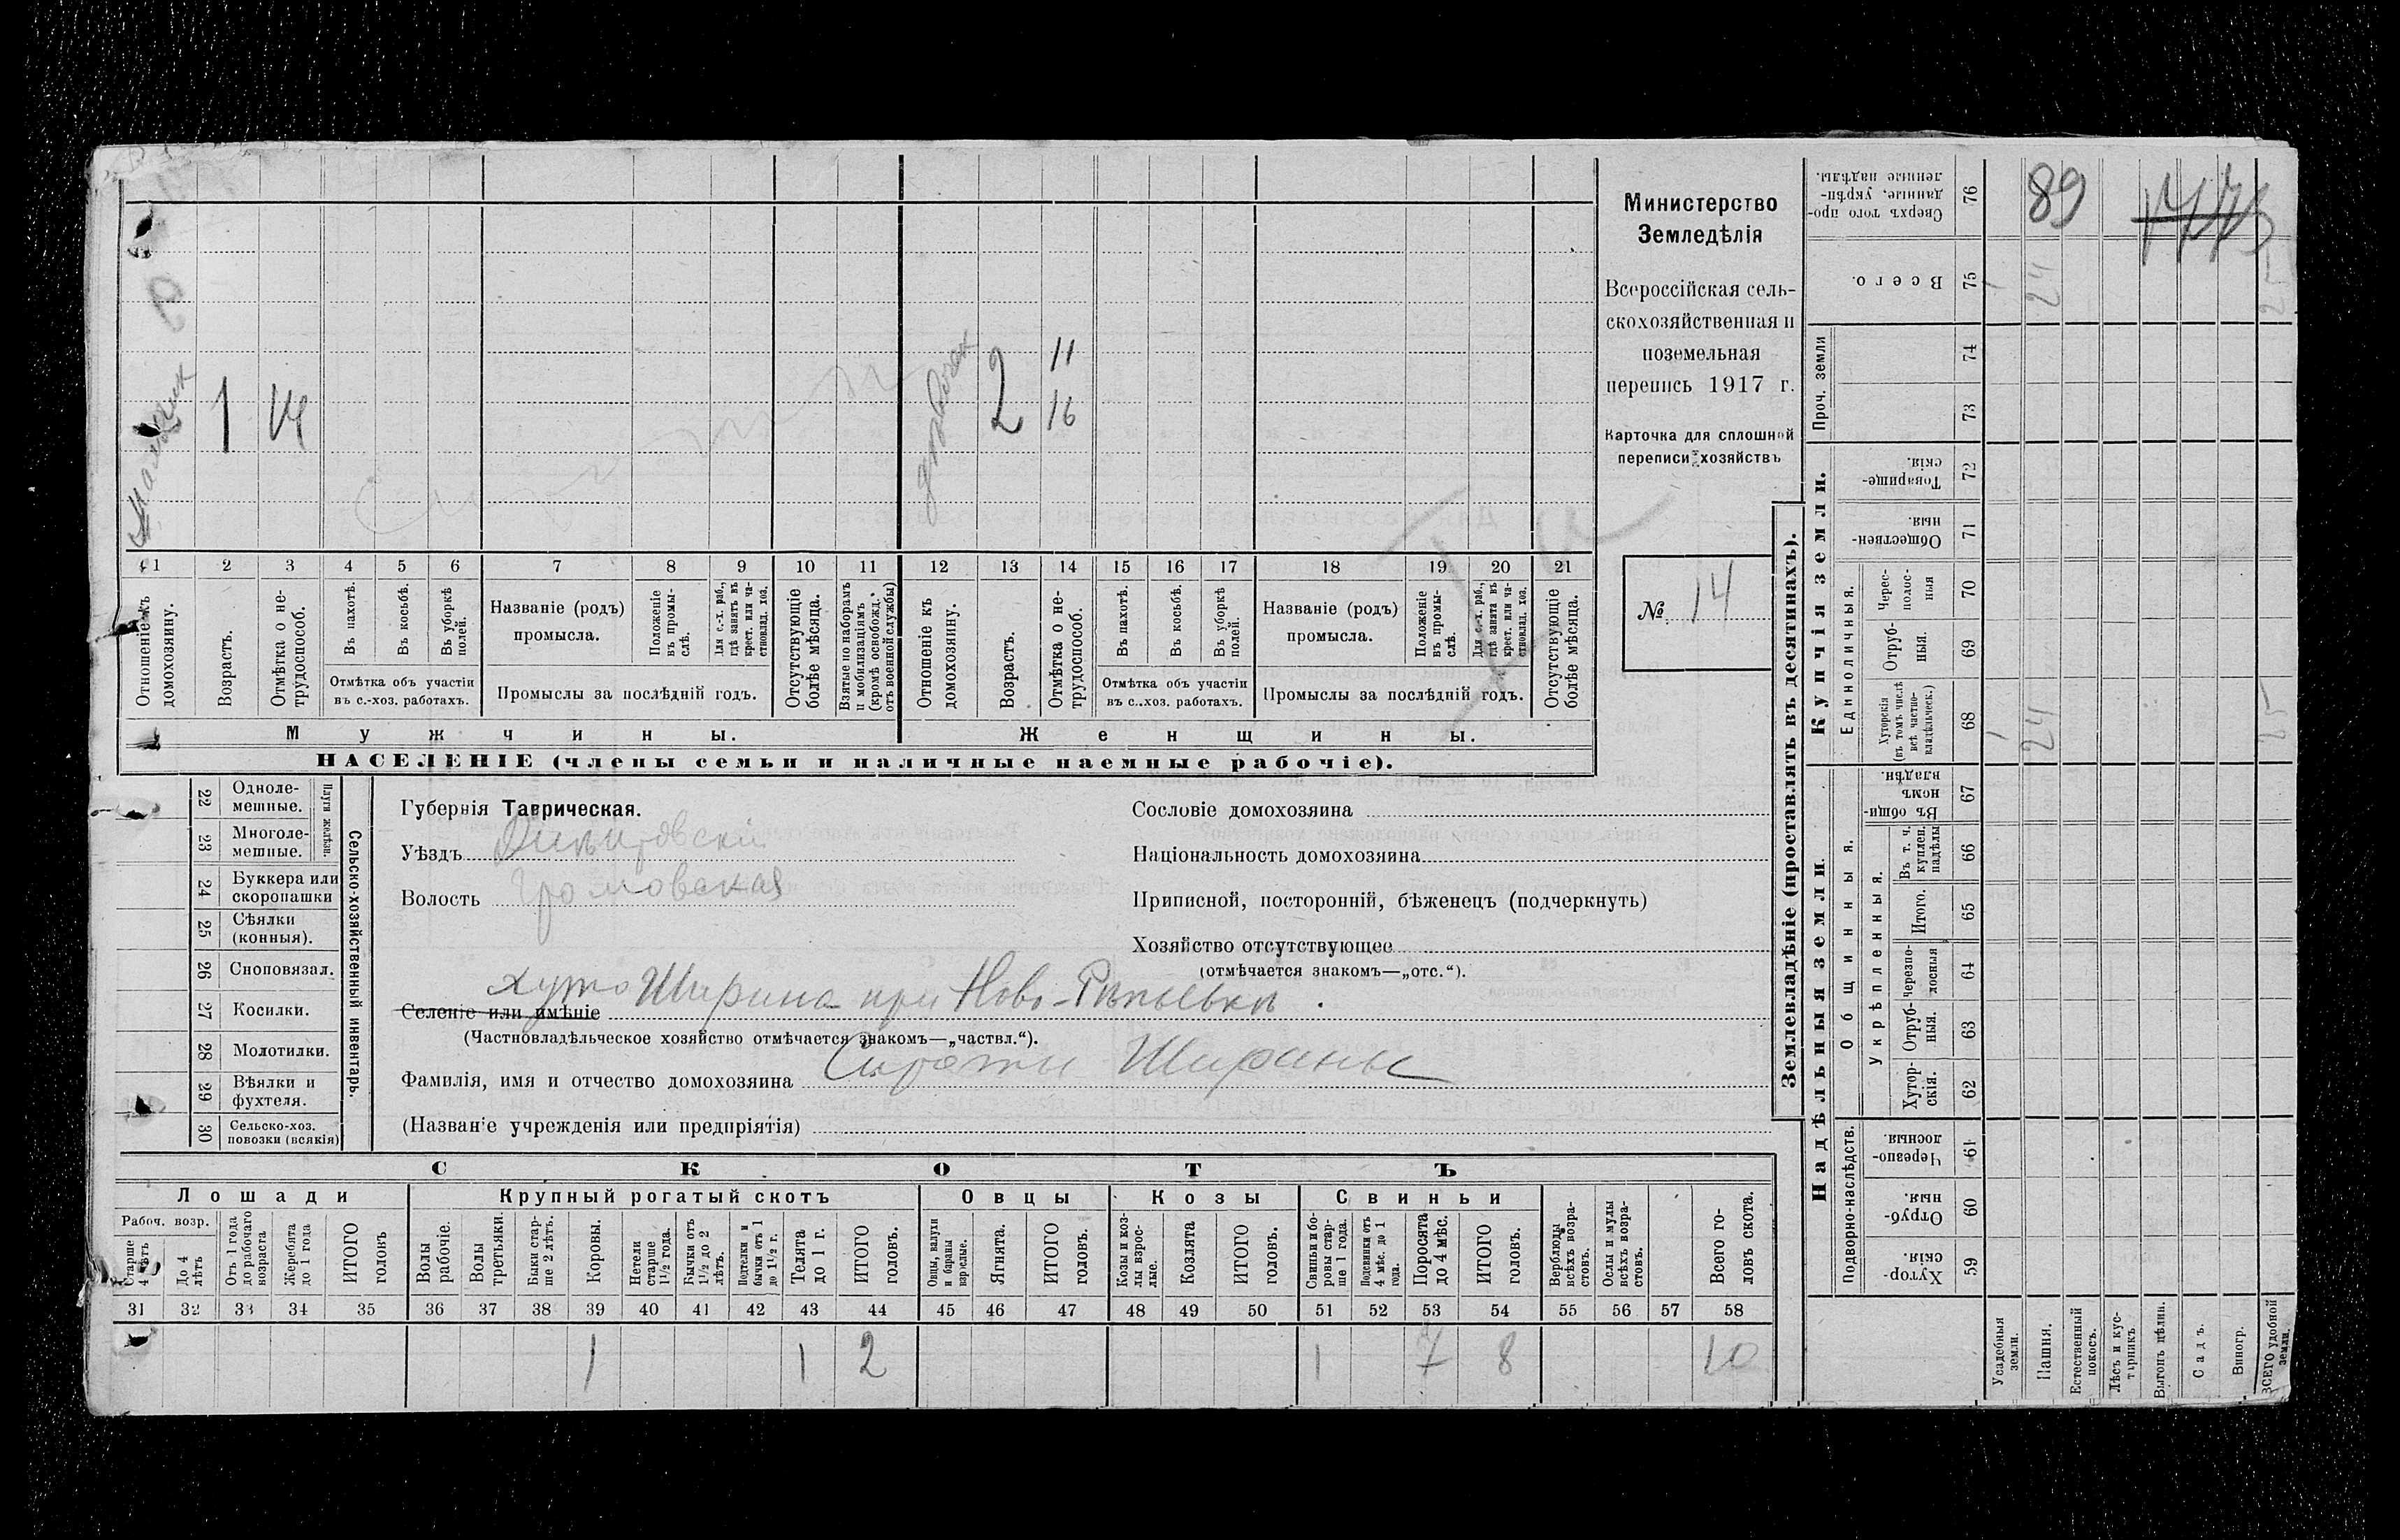 Министерство
Земледѣлія
Всероссійская сель-
скохозяйственная и
поземельная
перепись 1917 г.
Карточка для сплошной
переписи хозяйствъ
№ 14
мальчик 1 14
девочек 2 11
16
1 2 3 4 5 6 7 8 9 10 11 12 13 14 15 16 17 18 19 20 21
Отношеніе къ домохозяину.
Возрастъ.
Отмѣтка о не-трудоспособ.
Въ пахотѣ.
Въ косьбѣ.
Въ уборкѣ полей.
Отмѣтка объ участіи
въ с.-хоз. работахъ.
Названіе (родъ)
промысла.
Положеніе въ промы-слѣ.
Для с.-х. раб., гдѣ занятъ въ крест. или ча-стновлад. хоз.
Промыслы за послѣдній годъ.
Отсутствующіе болѣе мѣсяца.
Взятые по наборамъ и мобилизаціямъ (кромѣ освобожд. отъ военной службы)
Отношеніе къ домохозяину.
Возрастъ.
Отмѣтка о не-трудоспособ.
Въ пахотѣ.
Въ косьбѣ.
Въ уборкѣ полей.
Отмѣтка объ участіи
въ с.-хоз. работахъ.
Названіе (родъ)
промысла.
Положеніе въ промы-слѣ.
Для с.-х. раб., гдѣ занята въ крест. или ча-стновлад. хоз.
Промыслы за послѣдній годъ.
Отсутствующіе болѣе мѣсяца.
Мужчины. Женщины.
НАСЕЛЕНІЕ (члены семьи и наличные наемные рабочіе).
22 Одноле-мешные.
23 Многоле-мешные.
Плуги желѣзн.
24 Буккера или скоропашки
25 Сѣялки (конныя).
26 Сноповязал.
27 Косилки.
28 Молотилки.
29 Вѣялки и фухтеля.
30 Сельско-хоз. повозки (всякія)
Сельско-хозяйственный инвентарь.
Губернія Таврическая.
Уѣздъ
Волость Громовская
Селеніе или имѣніе Ширина при Ново-
(Частновладѣльческое хозяйство отмѣчается знакомъ—„частвл.“).
Фамилія, имя и отчество домохозяина Сироты Ширины
(Названіе учрежденія или предпріятія)
Сословіе домохозяина
Національность домохозяина
Приписной, посторонній, бѣженецъ (подчеркнуть)
Хозяйство отсутствующее
(отмѣчается знакомъ—„отс.“).
СКОТЪ
Лошади Крупный рогатый скотъ Овцы Козы Свиньи
Рабоч. возр.
Старше 4 лѣтъ
До 4 лѣтъ
Отъ 1 года до рабочаго возраста
Жеребята до 1 года
ИТОГО головъ
Волы рабочіе.
Волы третьяки.
Быки стар-ше 2 лѣтъ.
Коровы.
Нетели старше 1½ года.
Бычки отъ 1½ до 2 лѣтъ.
Подтелки и бычки отъ 1 до 1½ г.
Телята до 1 г.
ИТОГО головъ.
Овцы, валухи и бараны взрослые.
Ягнята.
ИТОГО головъ.
Козы и коз-лы взрос-лые.
Козлята
ИТОГО головъ.
Свиньи и бо-ровы стар-ше 1 года.
Подсвинки отъ 4 мѣс. до 1 года.
Поросята до 4 мѣс.
ИТОГО головъ.
Верблюды всѣхъ возра-стовъ.
Ослы и мулы всѣхъ возра-стовъ.
Всего го-ловъ скота.
31 32 33 34 35 36 37 38 39 40 41 42 43 44 45 46 47 48 49 50 51 52 53 54 55 56 57 58
1 1 2 1 7 8 10
Землевладѣніе (проставлять въ десятинахъ).
Купчія земли.
Надѣльныя земли.
Сверхъ того про-данные, укрѣп-ленные надѣлы. 76 89
Всего. 75 1 24 25
Проч. земли 74
73
Товарище-скія. 72
Обществен-ныя. 71
Единоличныя.
Черес-полос-ныя 70
Отруб-ныя. 69
Хуторскія (въ томъ числѣ всѣ частно-владѣльческ.) 68 1 24 25
Въ общи-номъ владѣн. 67
Общинныя.
Укрѣпленныя.
Въ т. ч. куплен. надѣлы 66
Итого. 65
Черезпо-лосныя 64
Отруб-ныя. 63
Хутор-скія. 62
Подворно-наслѣдств.
Черезпо-лосныя. 61
Отруб-ныя. 60
Хутор-скія. 59
Усадебныя земли.
Пашня.
Естественный покосъ.
Лѣсъ и кус-тарникъ
Выгонъ цѣлин.
Садъ.
Виногр.
ВСЕГО удобной земли.